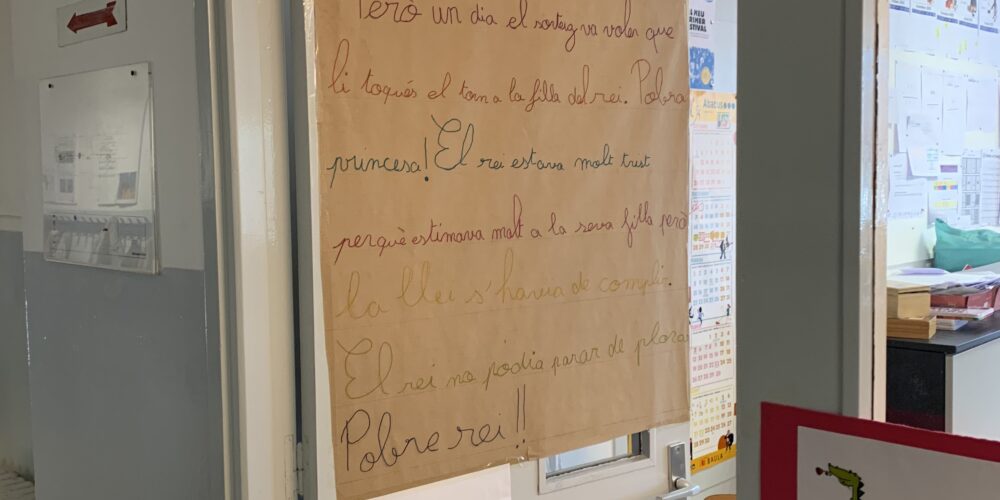 Però un dia el sorteig va voler que
li toqués el torn a la filla del rei. Pobra
princesa! El rei estava molt trist
perquè estimava molt a la seva filla però
la llei s'havia de complir.
El rei no podia parar de plorar
Pobre rei!!
Abacus